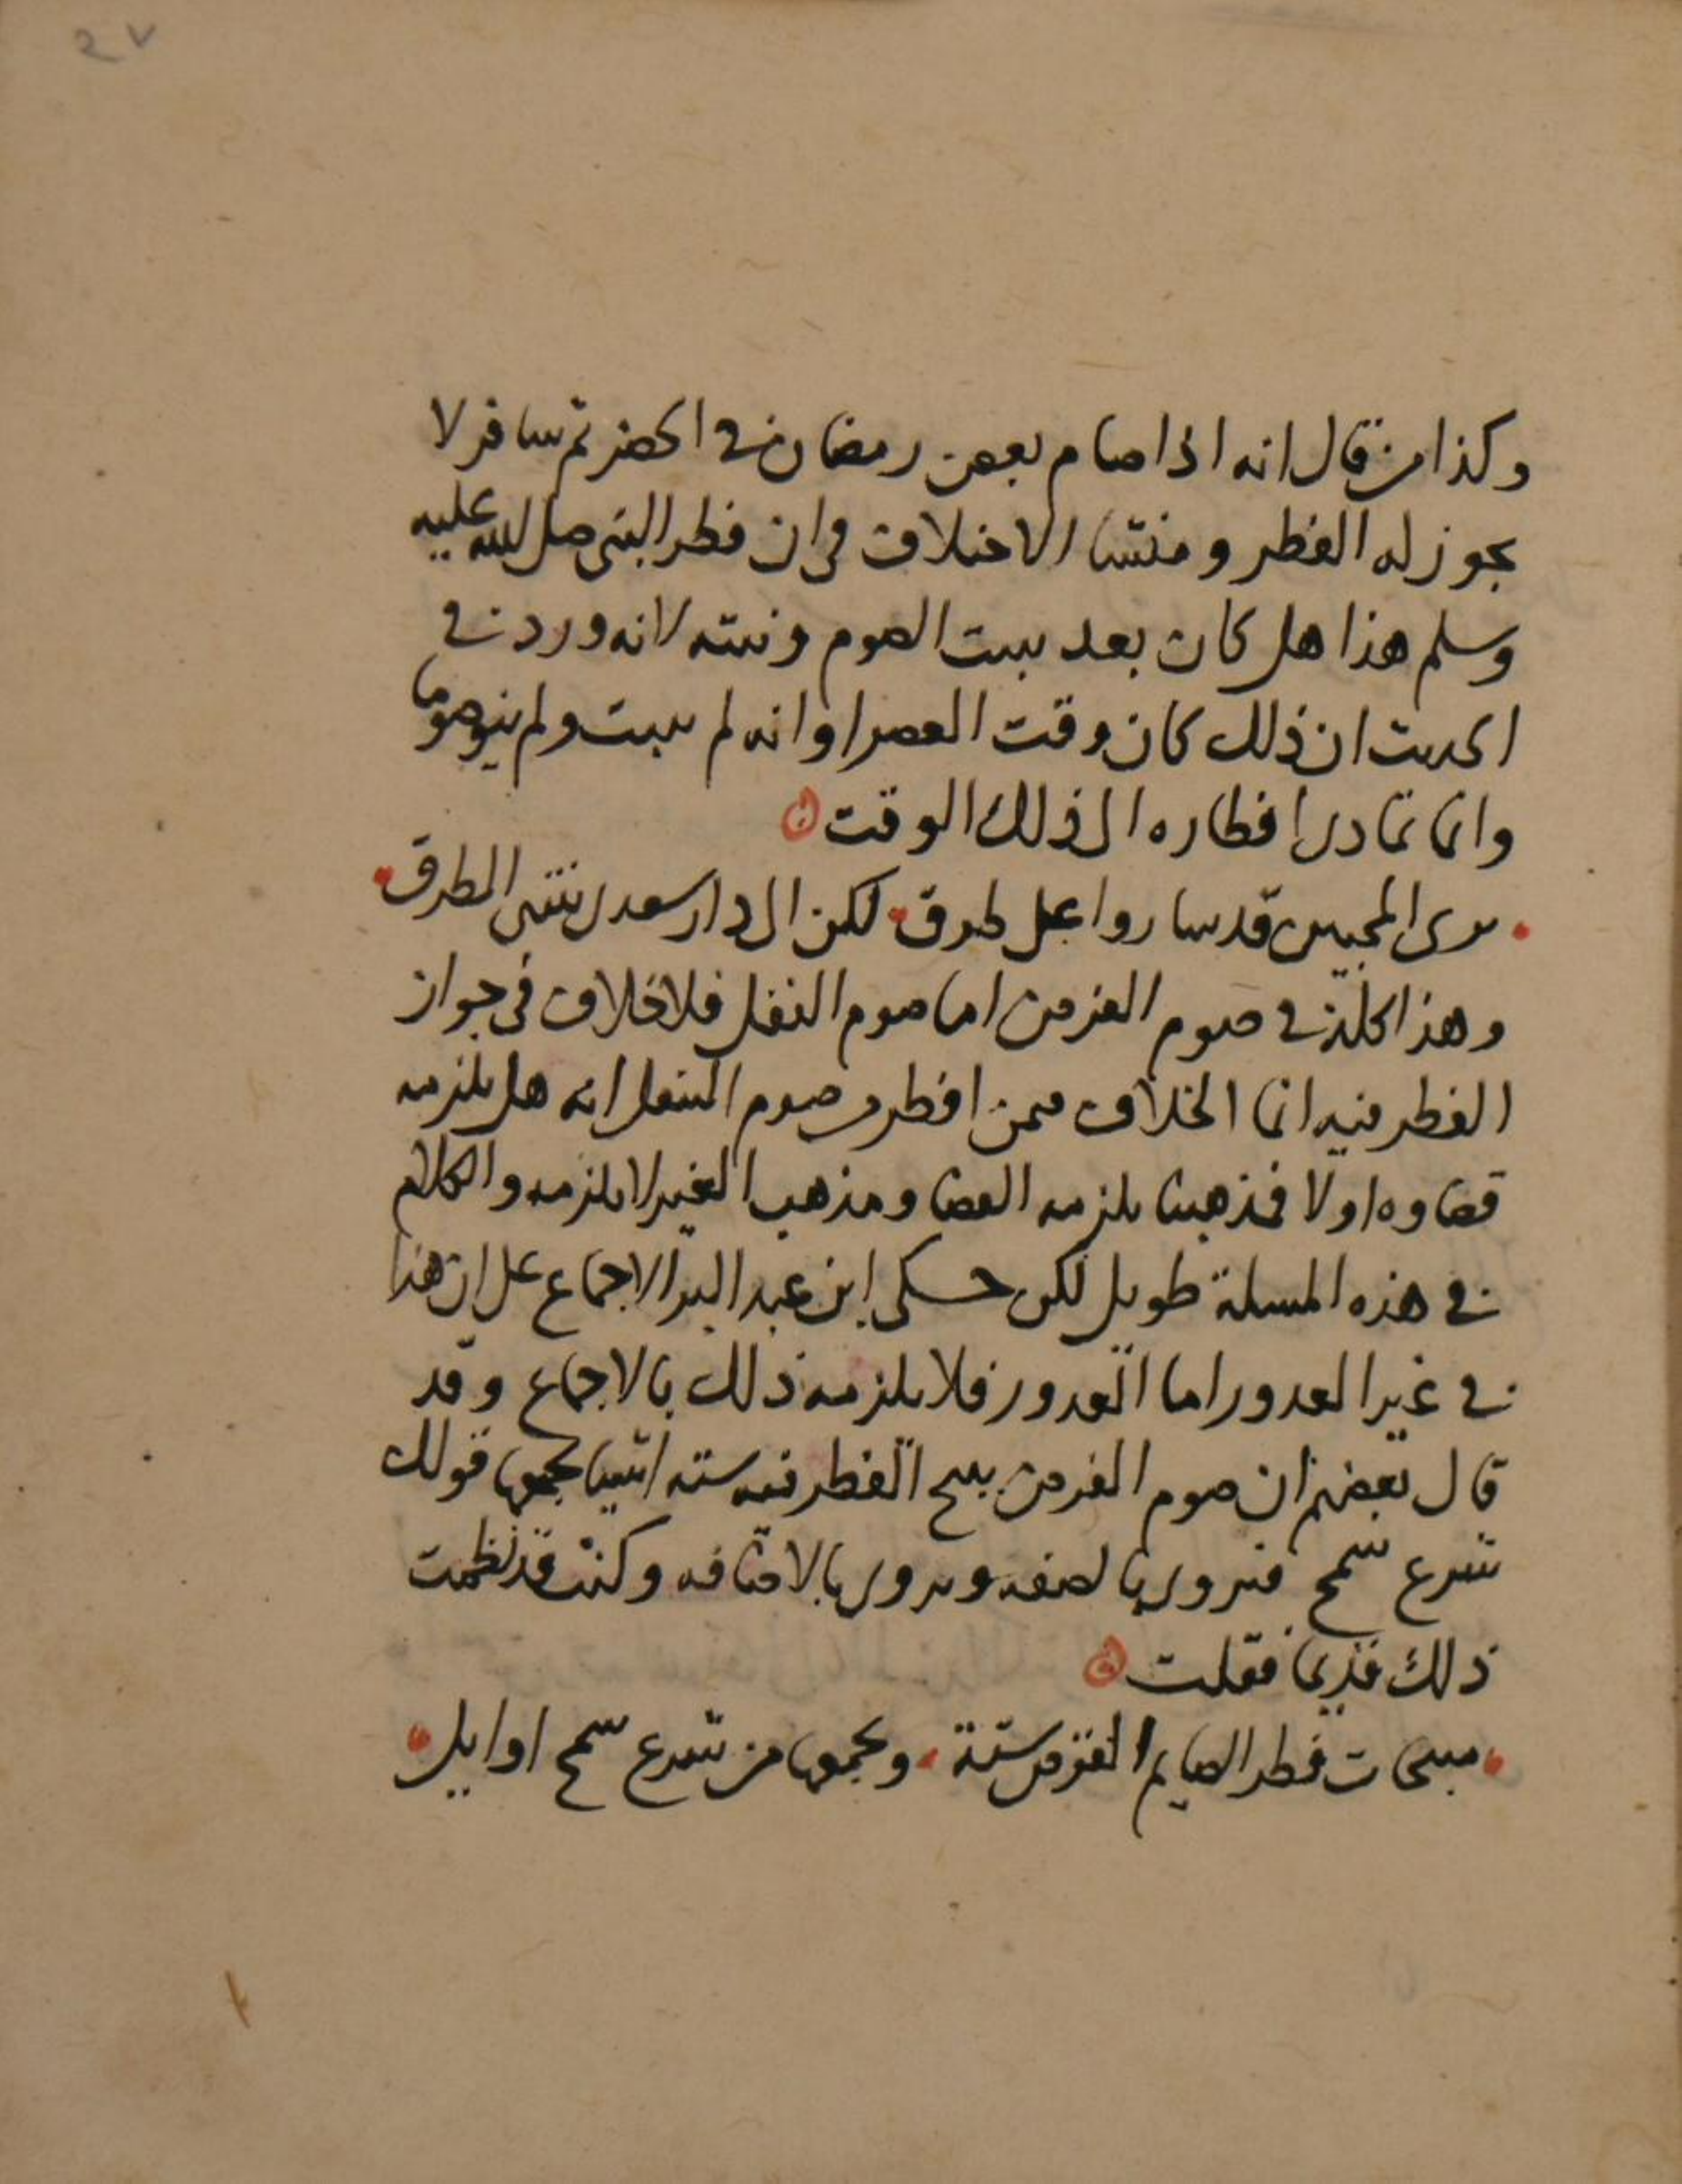 ٢٧
وكذا من قال انه اذا صام بعض رمضان في الحضر ثم سافر لا
يجوز له الفطر ومنشا الاختلاف في ان فطر النبي صلى الله عليه
وسلم هذا هل كان بعد تبييت الصوم ونيته لانه ورد في
الحديث ان ذلك كان وقت العصر او انه لم يبيت ولم ينو صوما
وانما تمادى افطاره الى ذلك الوقت
ترى المحبين قد ساروا على طرق لكن الى دار سعدى تنتهي الطرق
وهذا كله في صوم الفرض اما صوم النفل فلا خلاف في جواز
الفطر فيه انما الخلاف فيمن افطر من صوم النفل انه هل يلزمه
قضاوه اولا فمذهبنا يلزمه القضا ومذهب الغير لا يلزمه والكلام
في هذه المسلة طويل لكن حكى ابن عبد البر الاجماع على ان هذا
في غير المعذور اما المعذور فلا يلزمه ذلك بالاجماع وقد
قال بعضهم ان صوم الفرض يبيح الفطر فيه ستة اشيا يجمعها قولك
شرع سمح فيروى بالصفه ويروى بالاضافه وكنت قد نظمت
ذلك قديما فقلت
مبيحات فطر الصايم الفرض ستة ويجمعها من شرع سمح اوايل